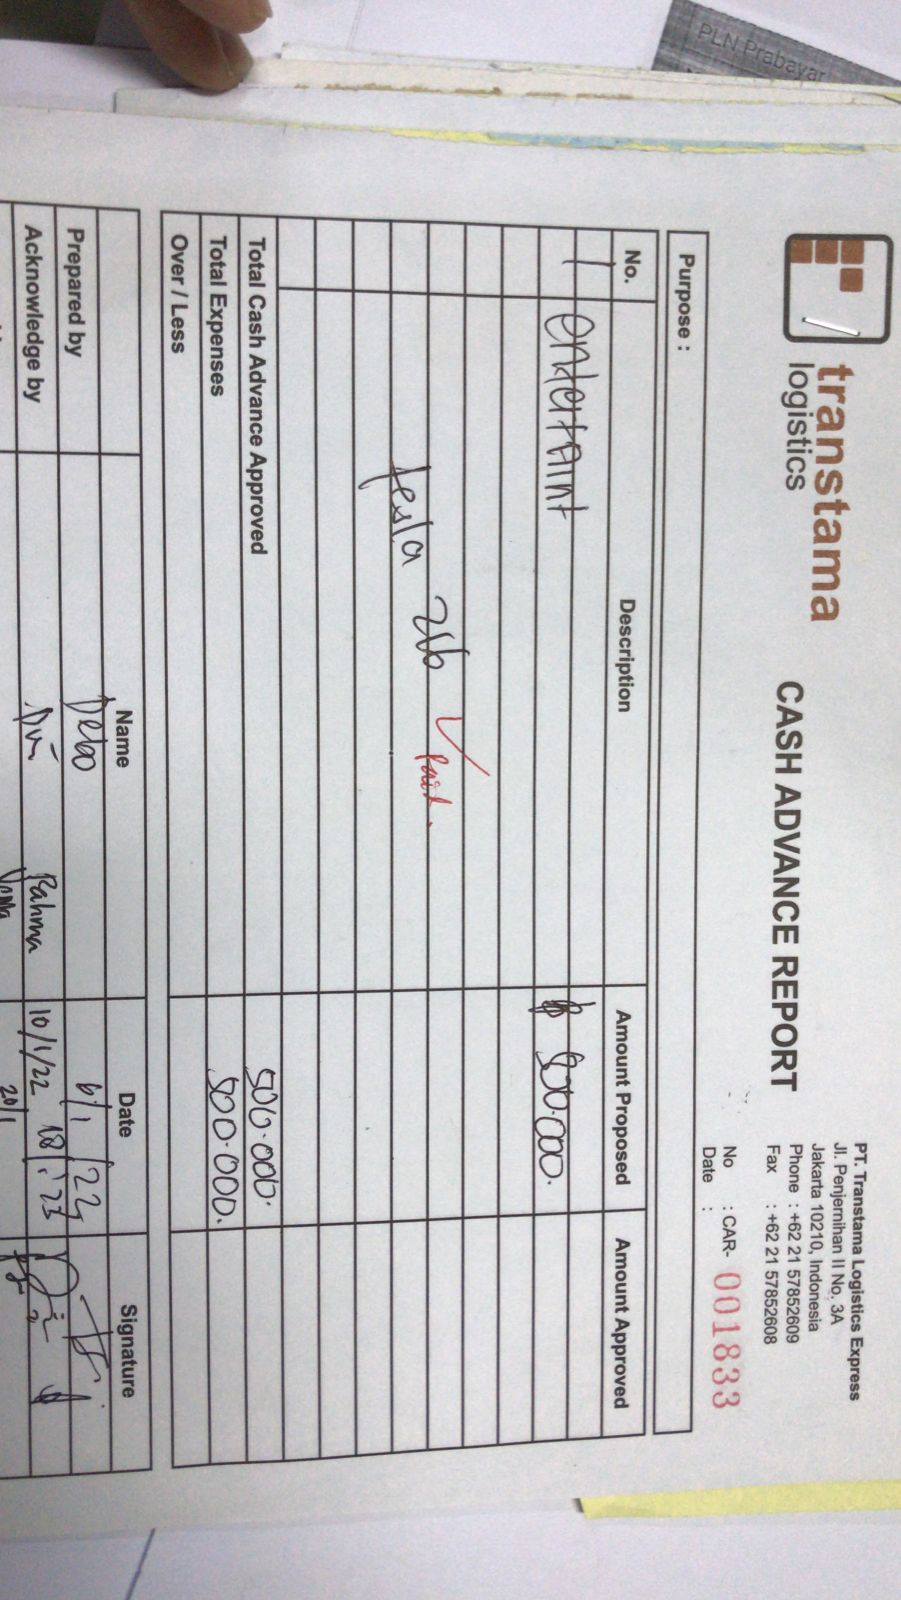 PLN Prabayar
transtama
logistics
CASH ADVANCE REPORT
PT. Transtama Logistics Express
Jl. Penjernihan II No. 3A
Jakarta 10210, Indonesia
Phone : +62 21 57852609
Fax : +62 21 57852608
No : CAR- 001833
Date :
Purpose :
No. Description Amount Proposed Amount Approved
1 entertaint 500.000.
Paid.
Total Cash Advance Approved 500.000.
Total Expenses 500.000.
Over / Less
Name Date Signature
Prepared by Debo 6/1/22
Acknowledge by Dvi Rahma 10/1/22 18/1'23
20/1